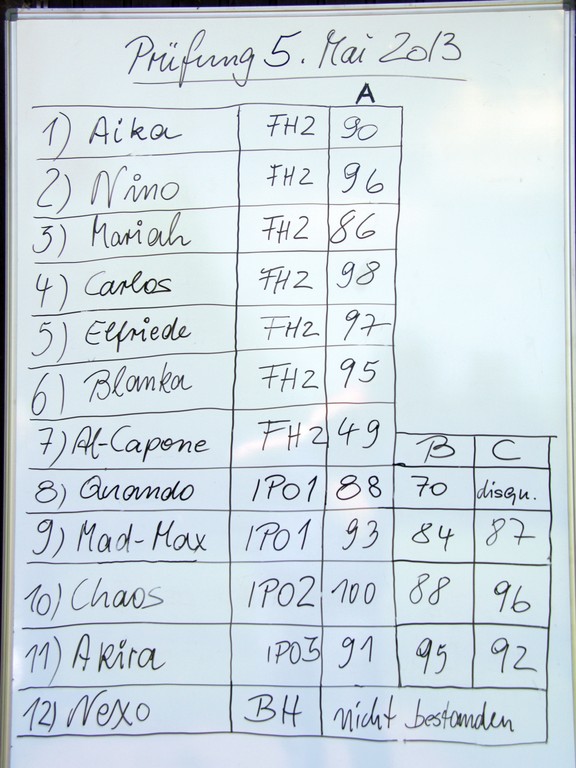 Prüfung 5. Mai 2013
A
1) Aika FH2 90
2) Nino FH2 96
3) Mariah FH2 86
4) Carlos FH2 98
5) Elfriede FH2 97
6) Blanka FH2 95
7) Al-Capone FH2 49 B C
8) Quando IPO1 88 70 disqu.
9) Mad-Max IPO1 93 84 87
10) Chaos IPO2 100 88 96
11) Akira IPO3 91 95 92
12) Nexo BH nicht bestanden